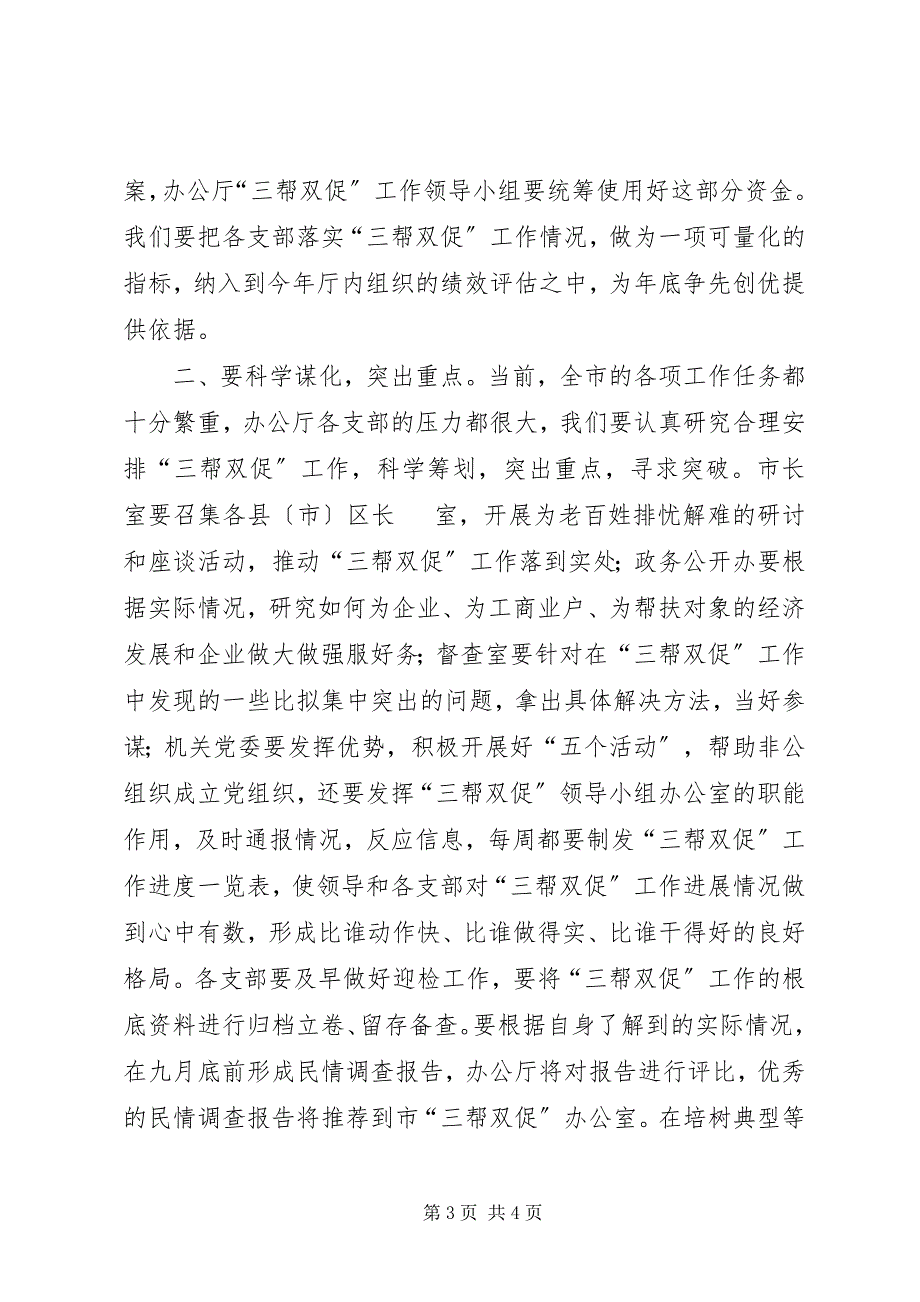 案，办公厅“三帮双促〞工作领导小组要统筹使用好这部分资金。
我们要把各支部落实“三帮双促〞工作情况，做为一项可量化的
指标，纳入到今年厅内组织的绩效评估之中，为年底争先创优提
供依据。
二、要科学谋化，突出重点。当前，全市的各项工作任务都
十分繁重，办公厅各支部的压力都很大，我们要认真研究合理安
排“三帮双促〞工作，科学筹划，突出重点，寻求突破。市长
室要召集各县〔市〕区长　室，开展为老百姓排忧解难的研讨
和座谈活动，推动“三帮双促〞工作落到实处；政务公开办要根
据实际情况，研究如何为企业、为工商业户、为帮扶对象的经济
发展和企业做大做强服好务；督查室要针对在“三帮双促〞工作
中发现的一些比拟集中突出的问题，拿出具体解决方法，当好参
谋；机关党委要发挥优势，积极开展好“五个活动〞，帮助非公
组织成立党组织，还要发挥“三帮双促〞领导小组办公室的职能
作用，及时通报情况，反应信息，每周都要制发“三帮双促〞工
作进度一览表，使领导和各支部对“三帮双促〞工作进展情况做
到心中有数，形成比谁动作快、比谁做得实、比谁干得好的良好
格局。各支部要及早做好迎检工作，要将“三帮双促〞工作的根
底资料进行归档立卷、留存备查。要根据自身了解到的实际情况，
在九月底前形成民情调查报告，办公厅将对报告进行评比，优秀
的民情调查报告将推荐到市“三帮双促〞办公室。在培树典型等
第 3 页 共 4 页